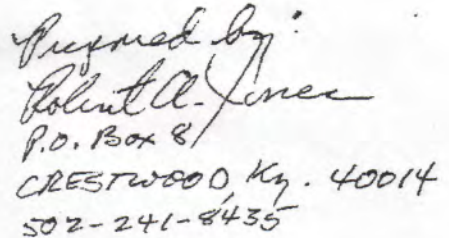 Prepared by:
Robert A. Jones
P.O. Box 8
CRESTWOOD, Ky. 40014
502-241-8435